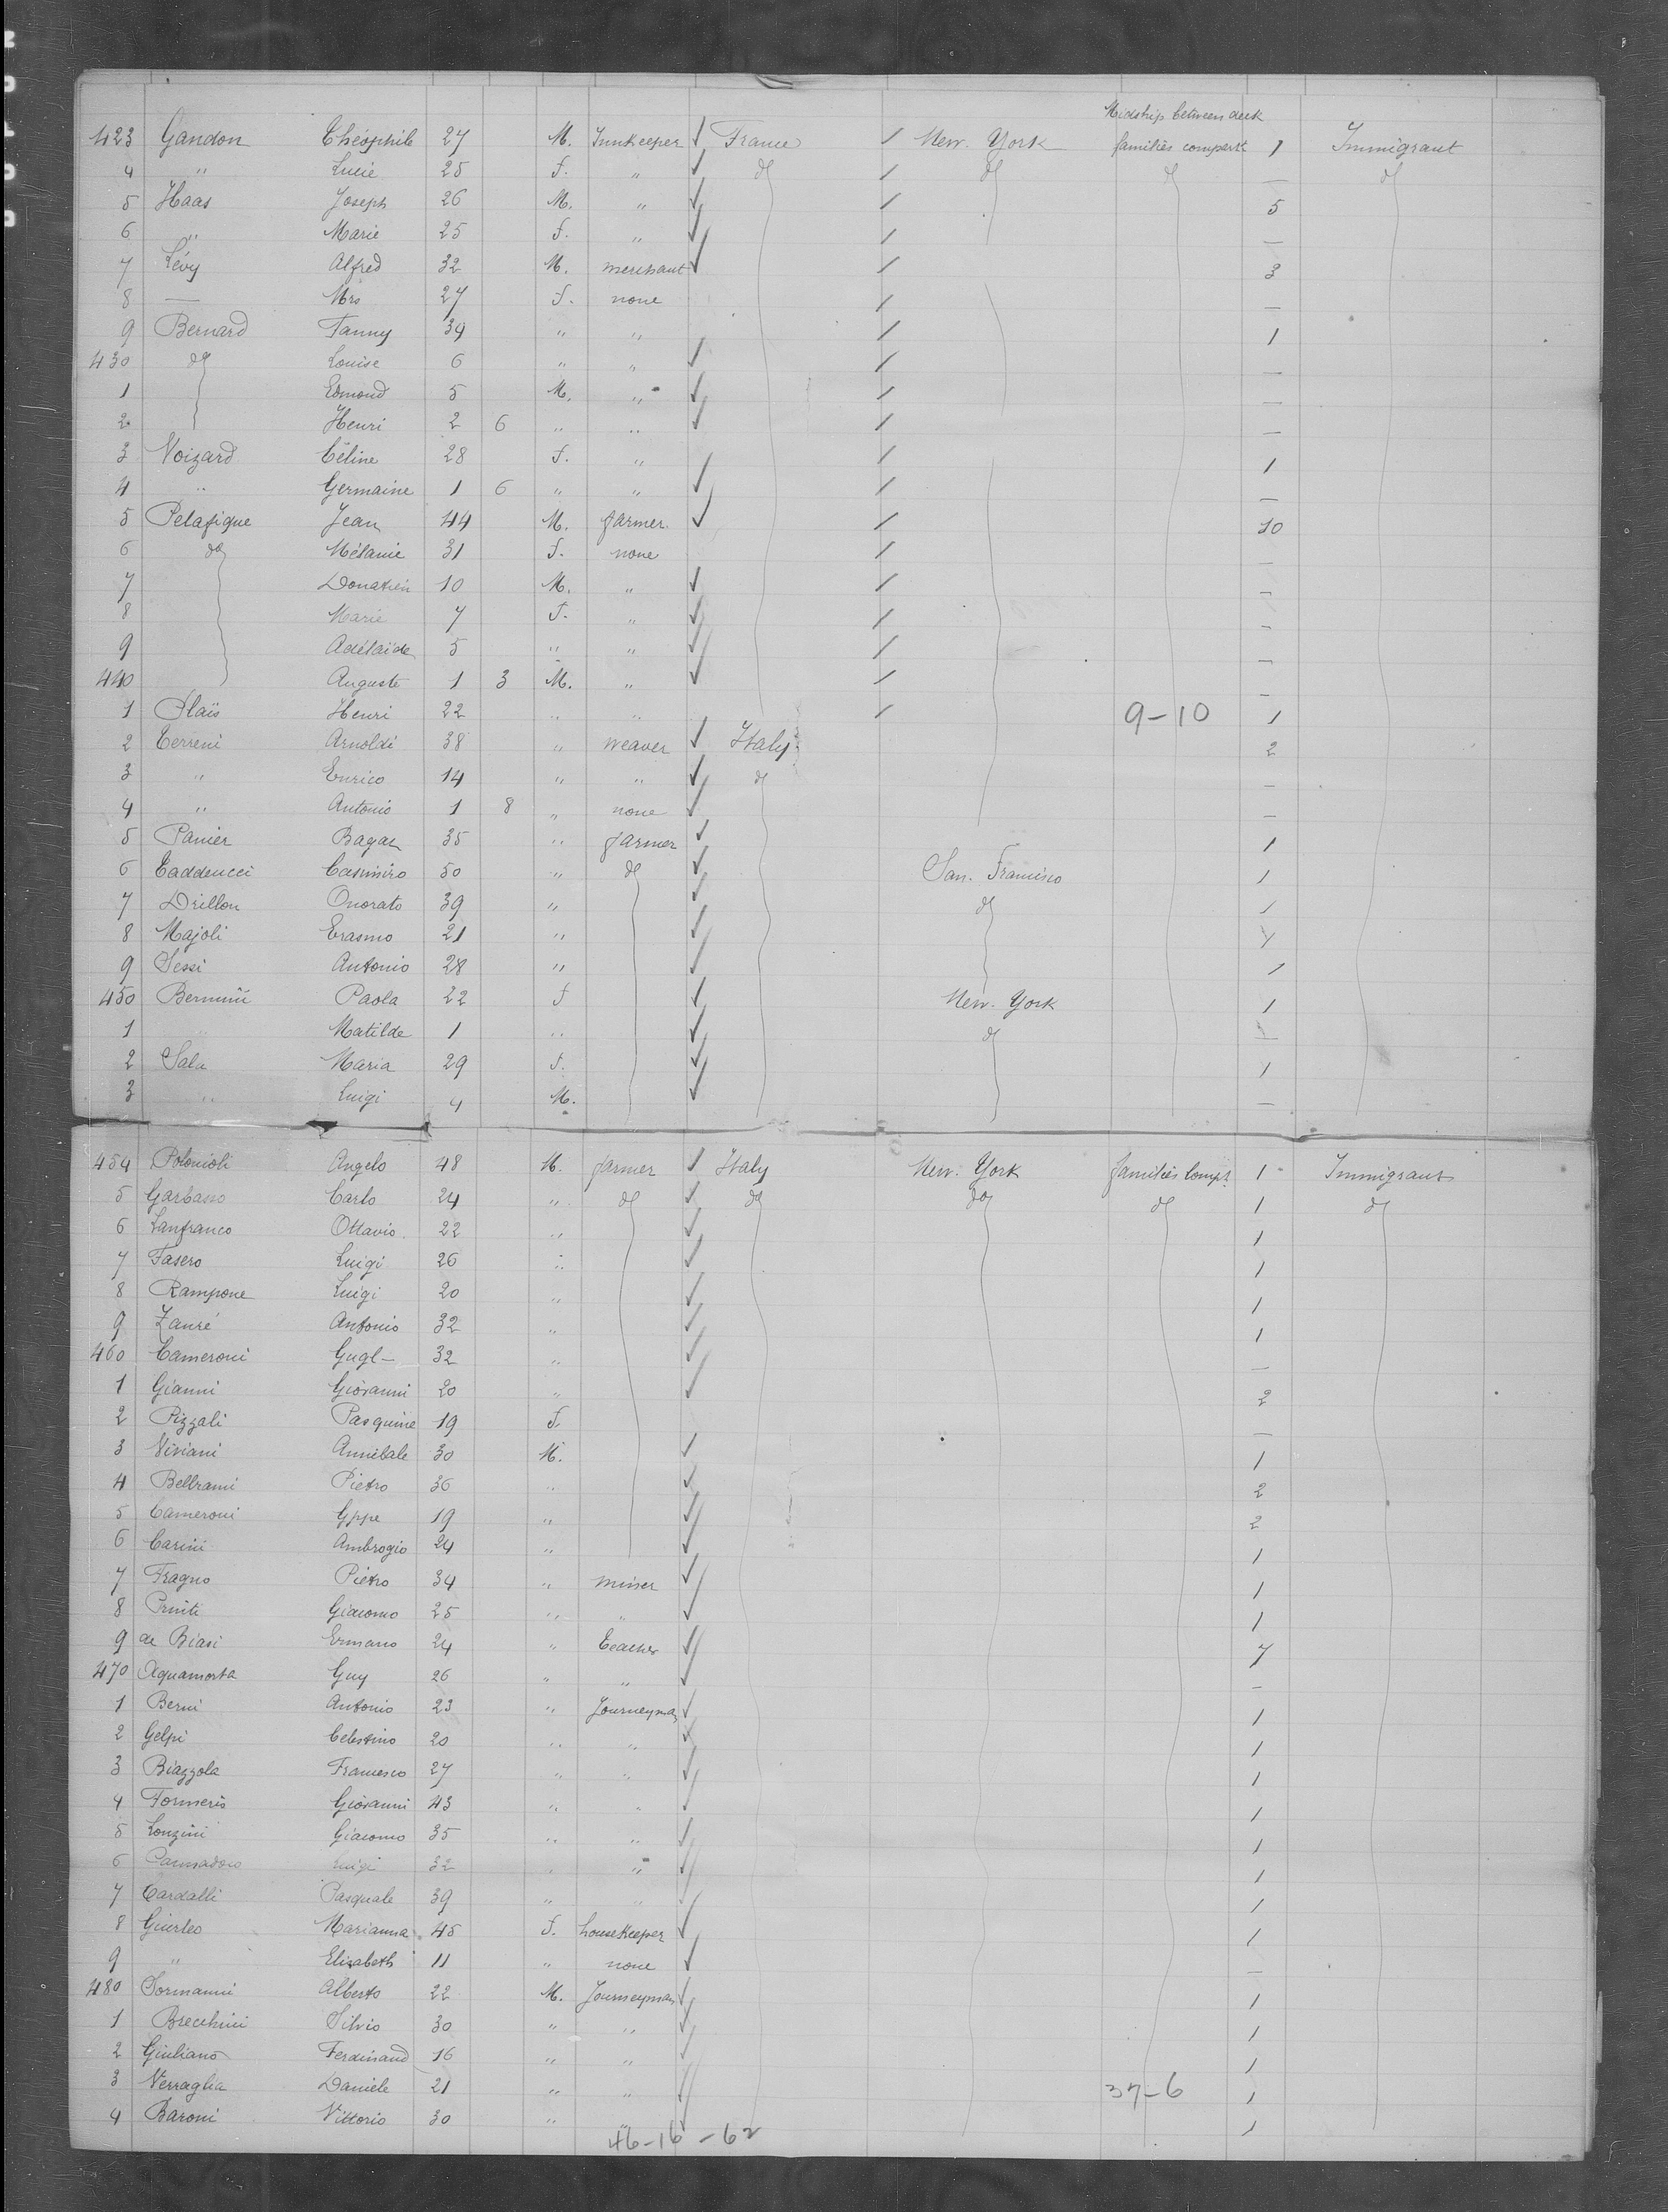 Midship between deck
423 Gandon Théophile 27 M. Innkeeper ✓ France / New. York families compart 1 Immigrant
4 " Lucie 25 F. " ✓ do / do do — do
5 Haas Joseph 26 M. " ✓ / 5
6 " Marie 25 F. " ✓ / —
7 Lévy Alfred 32 M. merchant ✓ / 3
8 — Mrs 27 F. none / —
9 Bernard Fanny 39 " " / 1
430 do Louise 6 " " ✓ / —
1 Edmond 5 M. " ✓ / —
2 Henri 2 6 " " ✓ / —
3 Voizard Céline 28 F. " / 1
4 " Germaine 1 6 " " ✓ / —
5 Pelafigue Jean 44 M. farmer ✓ / 10
6 do Mélanie 31 F. none / —
7 Donatien 10 M. " ✓ / —
8 Marie 7 F. " ✓ / —
9 Adélaïde 5 " " ✓ / —
440 Auguste 1 3 M. " ✓ / —
1 Plaïs Henri 22 " " / 9-10 1
2 Cerreni Arnoldi 38 " weaver ✓ Italy 2
3 " Enrico 14 " " ✓ do —
4 " Antonio 1 8 " none ✓ —
5 Panier 35 " farmer ✓ 1
6 Taddeucci Casimiro 50 " do ✓ San. Francisco 1
7 Drillon Onorato 39 " ✓ do 1
8 Majoli Erasmo 21 " ✓
9 Sessi Antonio 28 " ✓ 1
450 Paola 22 F ✓ New. York 1
1 " Matilde 1 " ✓ do
2 Sala Maria 29 F. ✓ 1
3 " Luigi 4 M. ✓ —
454 Polonioli Angelo 48 M. farmer ✓ Italy New. York families compt 1 Immigrant
5 Garbasso Carlo 24 " do ✓ do do do 1 do
6 Lanfranco Ottavio 22 " ✓ 1
7 Fasero Luigi 26 " ✓ 1
8 Rampone Luigi 20 " ✓ 1
9 Zanré Antonio 32 " ✓ 1
460 Cameroni Gugl— 32 " ✓ —
1 Gianni Giovanni 20 " ✓ 2
2 Pizzali Pasquine 19 F. —
3 Viviani Annibale 30 M. ✓ 1
4 Beltrami Pietro 36 " ✓ 2
5 Cameroni Gppe 19 " ✓ 2
6 Carini Ambrogio 24 " ✓ 1
7 Fragno Pietro 34 " miner ✓ 1
8 Giacomo 25 " " ✓ 1
9 de Biasi Ermano 24 " Teacher ✓ 7
470 Aquamorta Guy 26 " " ✓ —
1 Berni Antonio 23 " Journeyman ✓ 1
2 Gelpi Celestino 20 " " ✓ 1
3 Biazzola Francesco 27 " " ✓ 1
4 Formeris Giovanni 43 " " ✓ 1
5 Lonzini Giacomo 35 " " ✓ 1
6 Luigi 32 " " ✓ 1
7 Cardalli Pasquale 39 " " ✓ 1
8 Giurleo Marianna 45 F. housekeeper ✓ 1
9 " Elizabeth 11 " none ✓ —
480 Sormanni Alberto 22 M. Journeyman ✓ 1
1 Brecchini Silvio 30 " " ✓ 1
2 Giuliano Ferdinand 16 " " ✓ 1
3 Verraglia Daniele 21 " " ✓ 37-6 1
4 Baroni Vittorio 30 " " ✓ 1
46-16-62